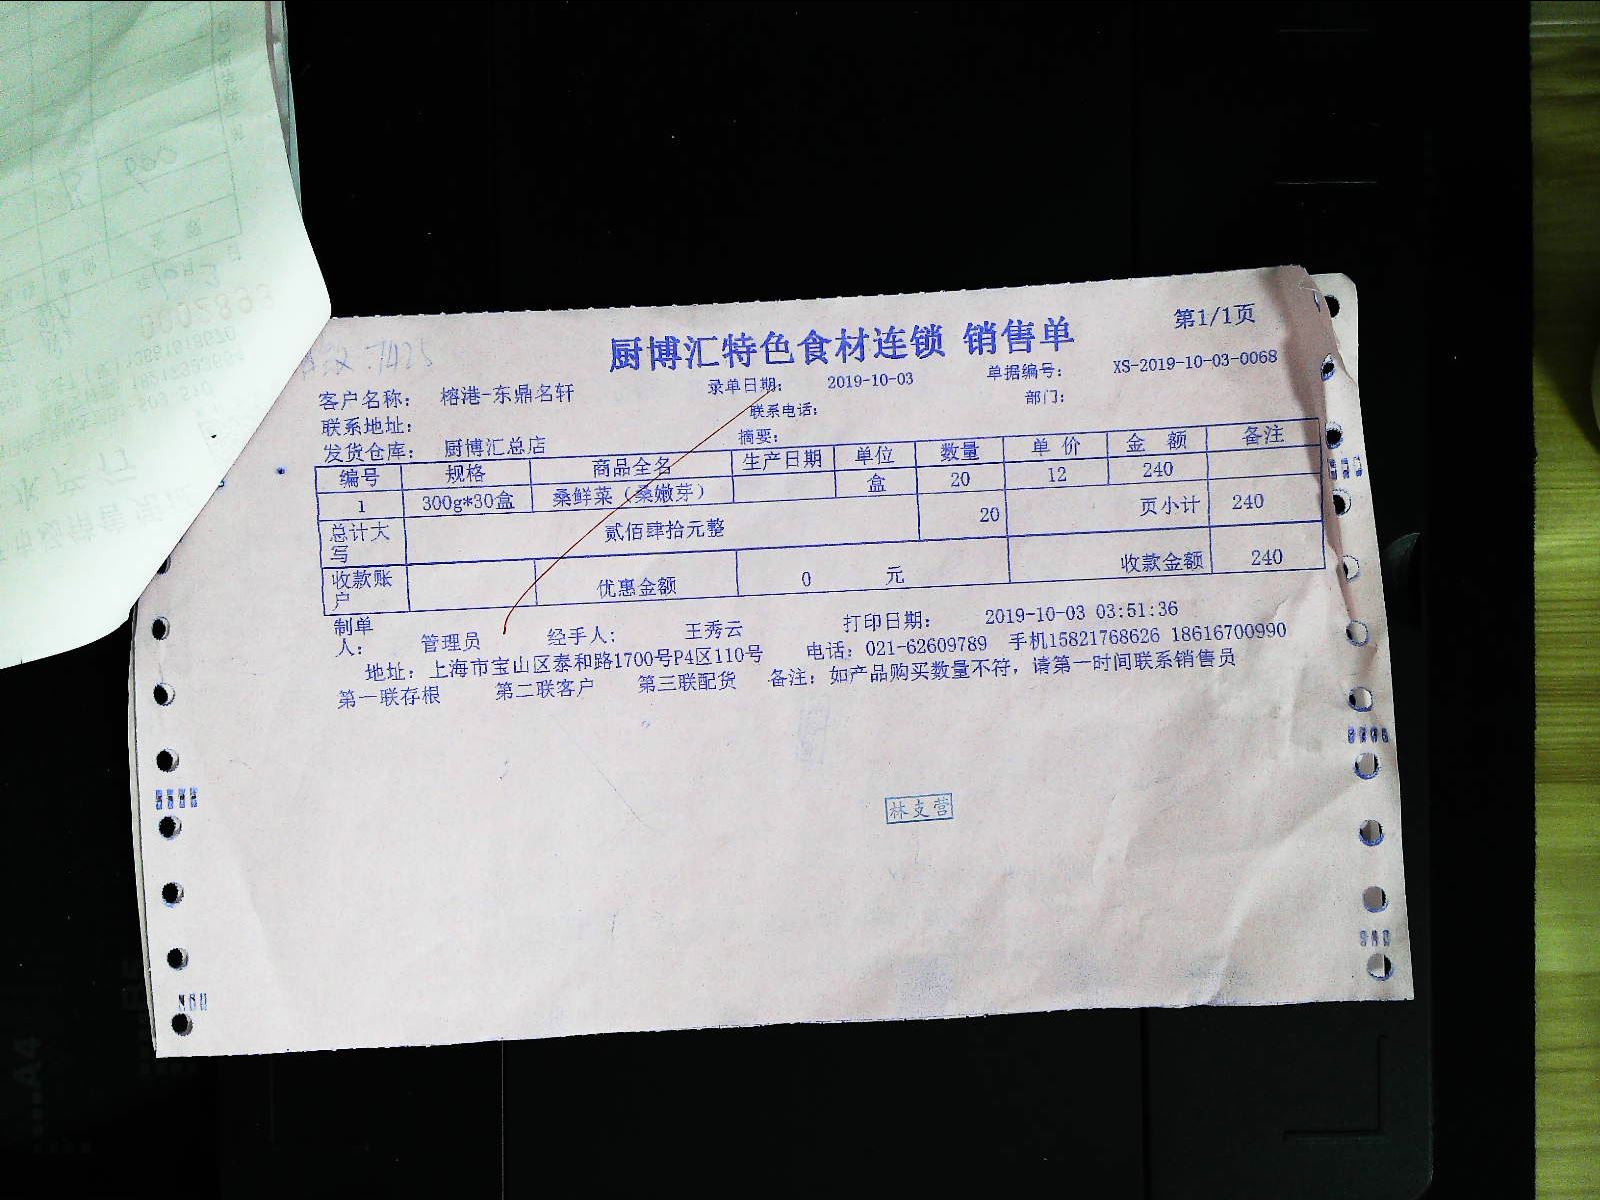 第1/1页
厨博汇特色食材连锁 销售单
客户名称： 榕港-东鼎名轩 录单日期： 2019-10-03 单据编号： XS-2019-10-03-0068
联系地址： 联系电话： 部门：
发货仓库： 厨博汇总店 摘要：
编号 规格 商品全名 生产日期 单位 数量 单 价 金 额 备注
1 300g*30盒 桑鲜菜（桑嫩芽） 盒 20 12 240
总计大写 贰佰肆拾元整 20 页小计 240
收款账户 优惠金额 0 元 收款金额 240
制单人： 管理员 经手人： 王秀云 打印日期： 2019-10-03 03:51:36
地址：上海市宝山区泰和路1700号P4区110号 电话：021-62609789 手机15821768626 18616700990
第一联存根 第二联客户 第三联配货 备注：如产品购买数量不符，请第一时间联系销售员
林支营